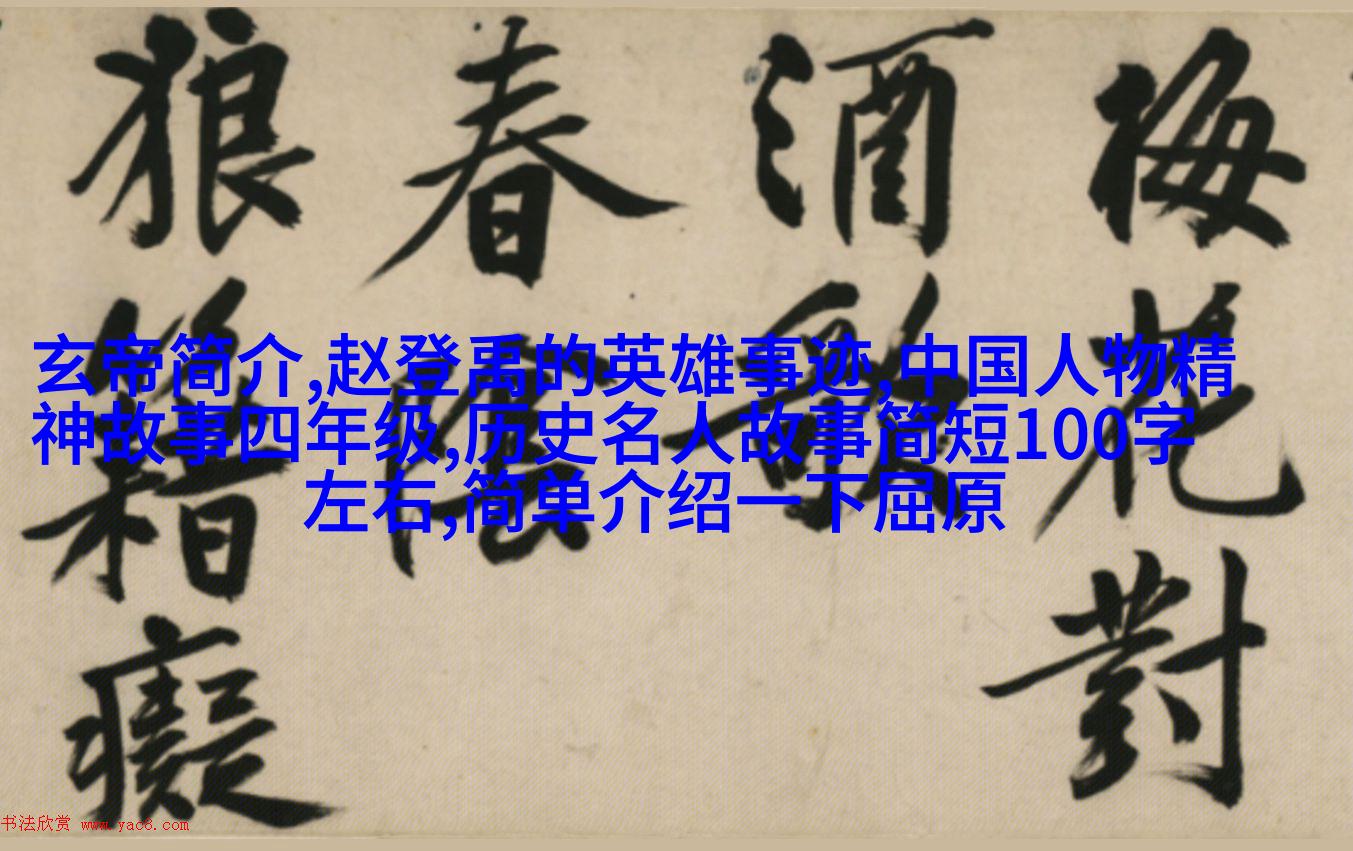 梅花對
酒
春
狼籍癡
玄帝简介,赵登禹的英雄事迹,中国人物精
神故事四年级,历史名人故事简短100字
左右,简单介绍一下屈原
书法欣赏 www.yac8.com